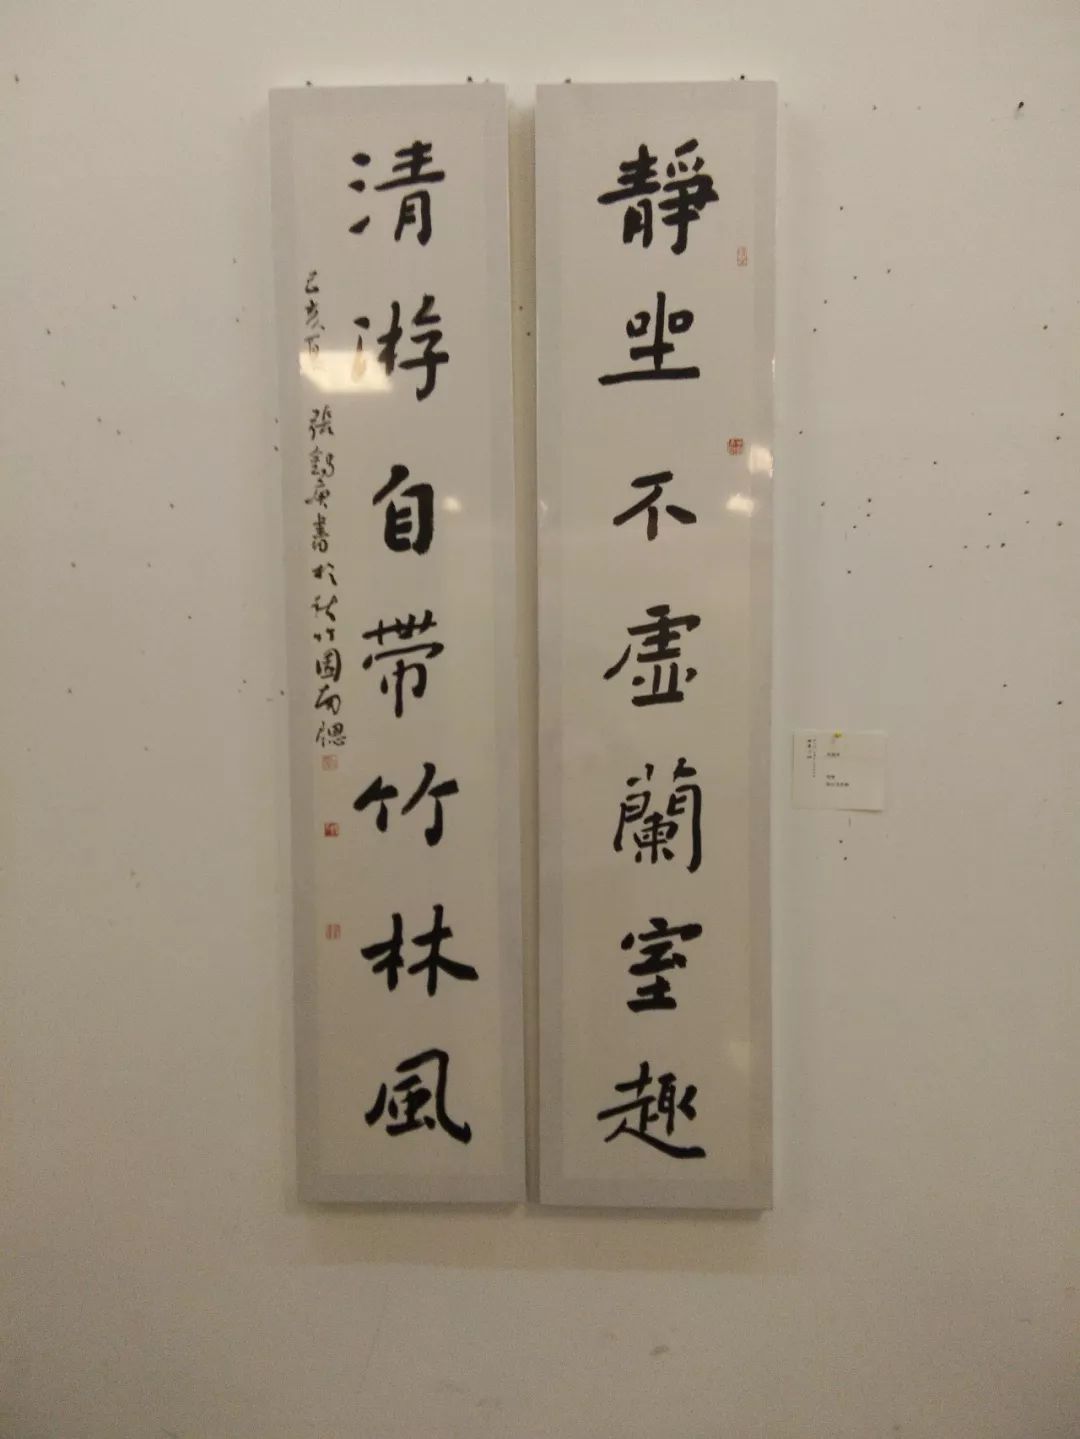 靜坐不虛蘭室趣
清游自帶竹林風
己亥百
張
書於秋竹園南牕